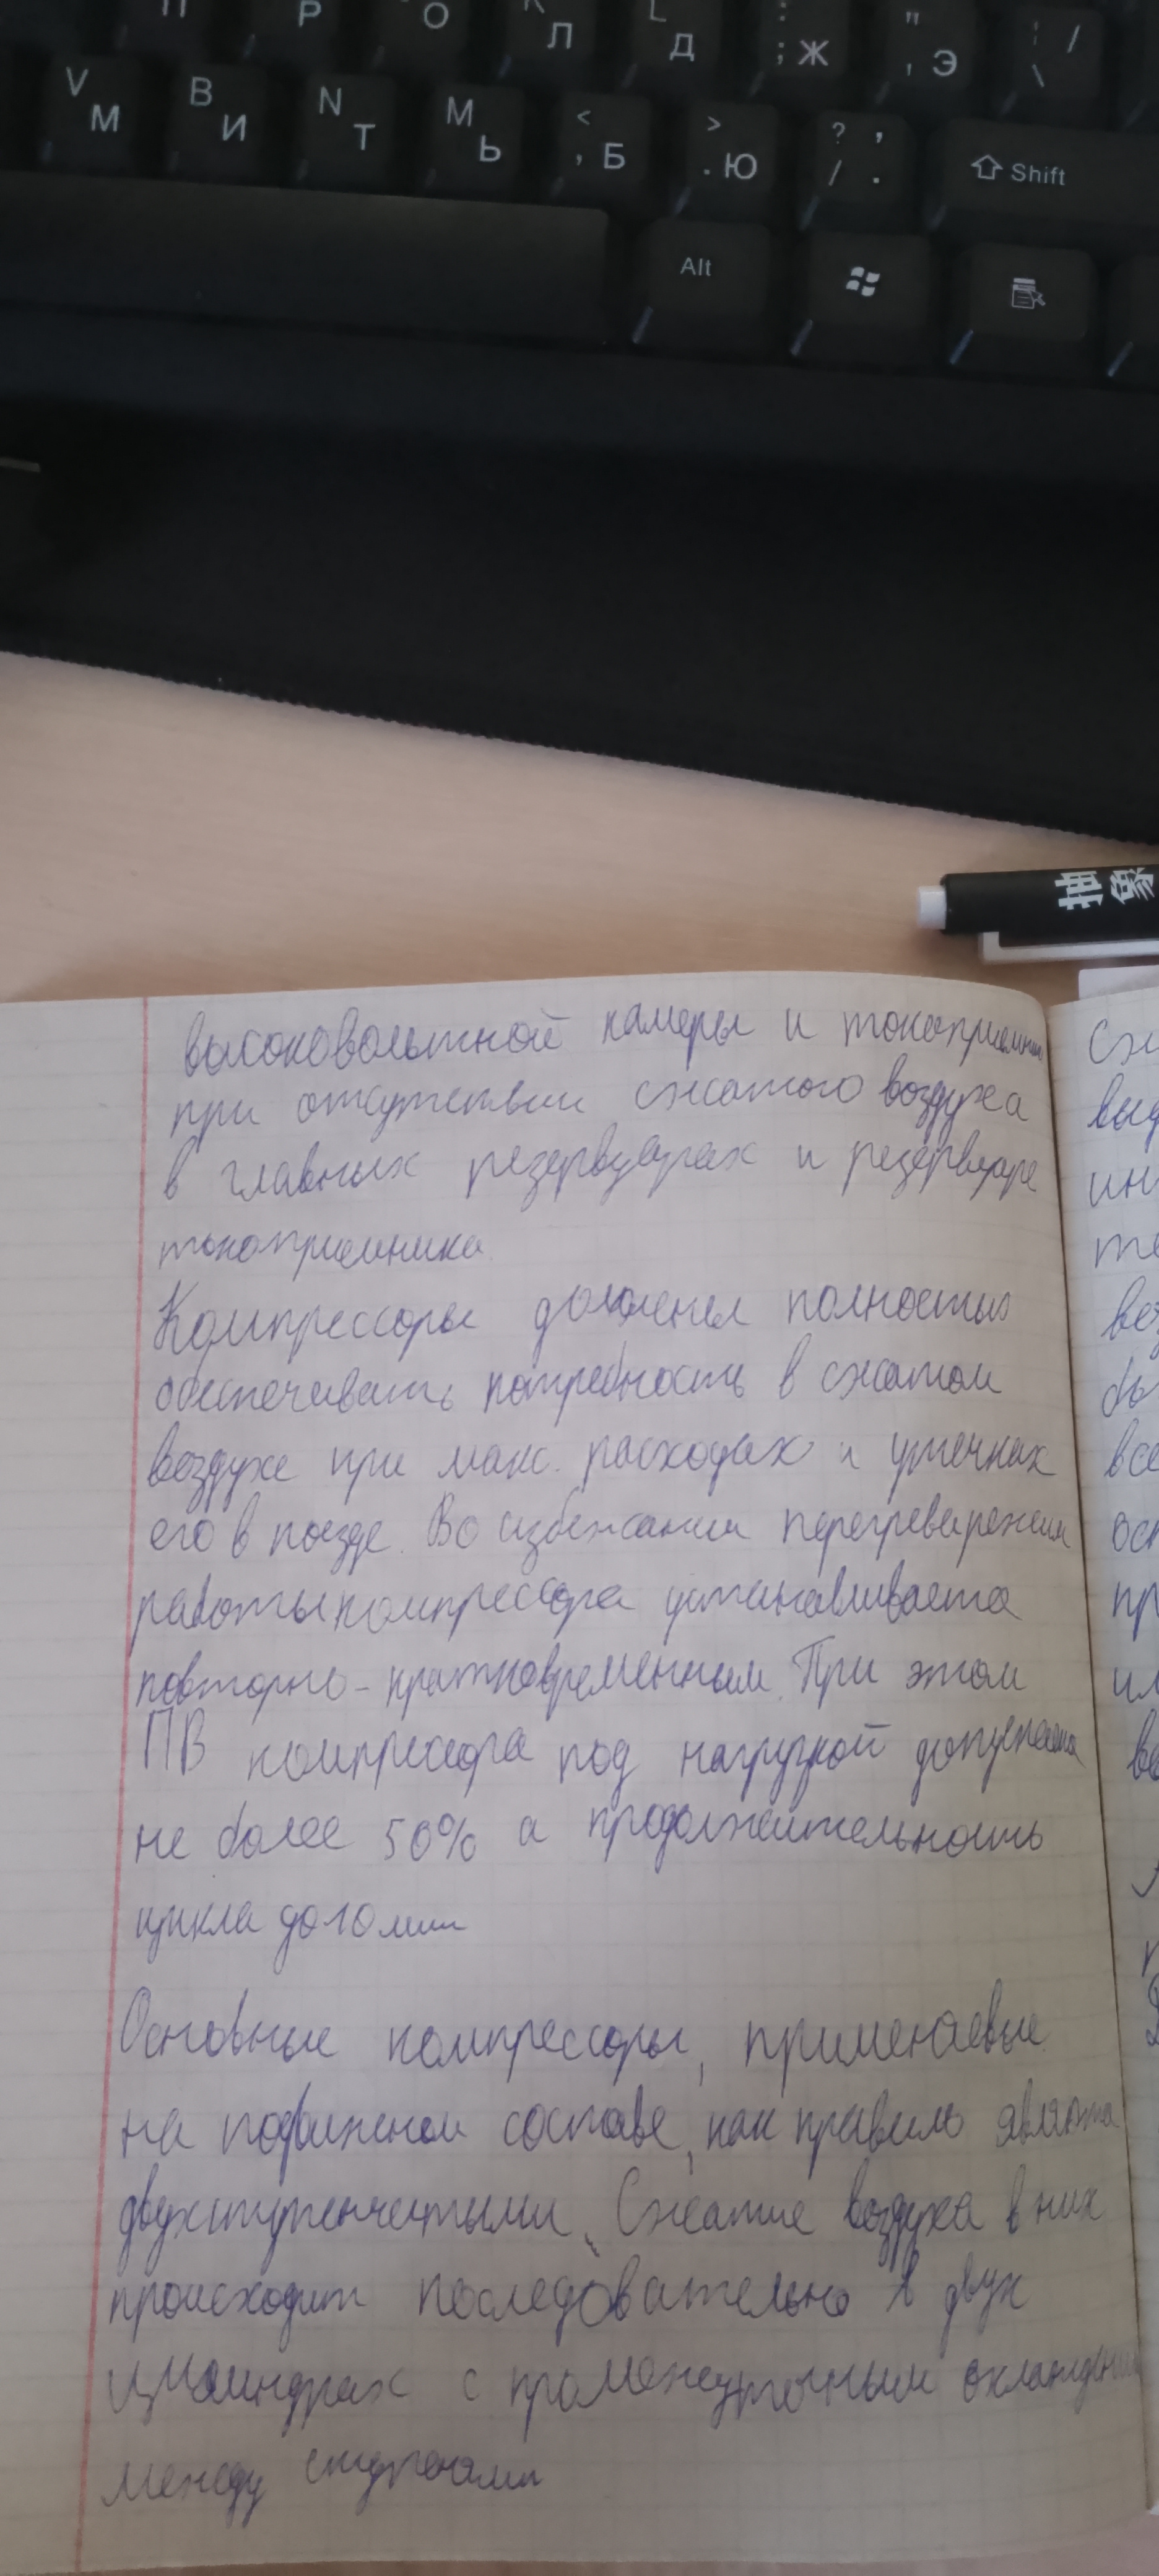 П Р О К Л L Д : ; Ж " ' Э ¦ / \
V М B И N Т M Ь < , Б > . Ю ? , / . Shift
Alt
抽 象
высоковольтной камеры и токоприемника
при отсутствии сжатого воздуха
в главных резервуарах и резервуаре
токоприемника.
Компрессоры должны полностью
обеспечивать потребность в сжатом
воздухе при макс. расходах и утечках
его в поезде. Во избежании перегрева режим
работы компрессора устанавливается
повторно-кратковременным. При этом
ПВ компрессора под нагрузкой допускается
не более 50% а продолжительность
цикла до 10 мин
Основные компрессоры, применяевые
на подвижном составе, как правило являются
двухступенчатыми. Сжатие воздуха в них
происходит последовательно в двух
цилиндрах с промежуточным охлаждением
между ступенями
Сж
выд
ин
те
воз
бы
все
ост
пр
ил
во